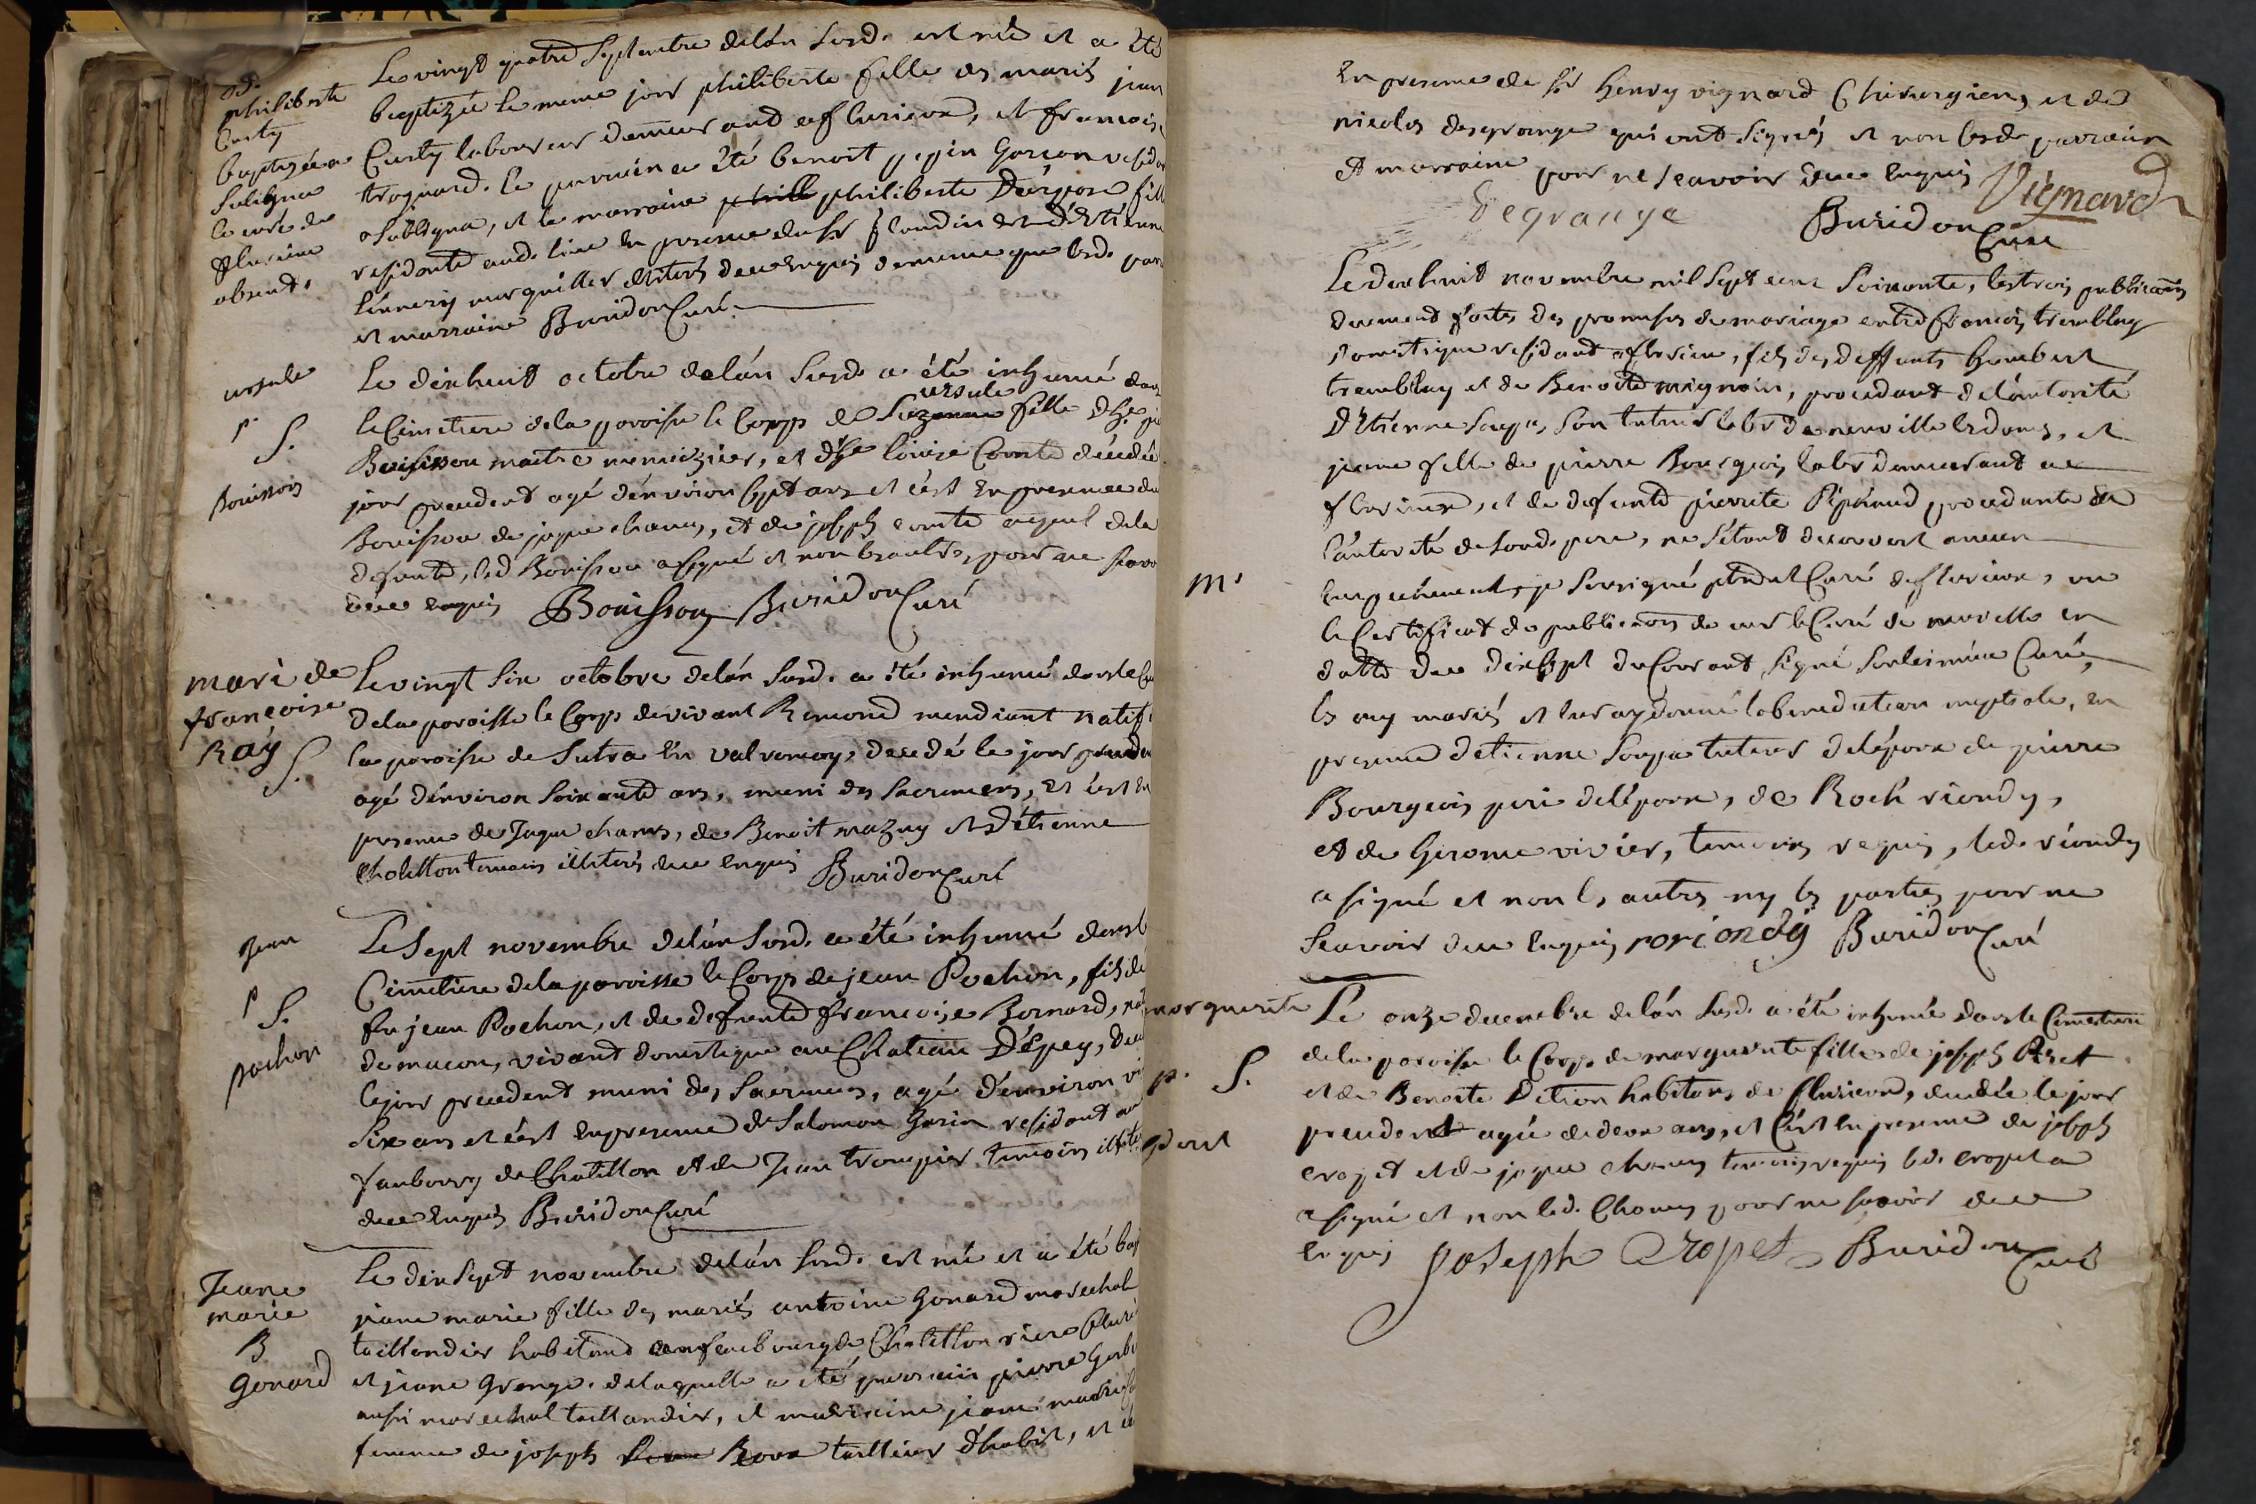 philiberte
Curty
baptizée a
Suligna
le curé de
flurieux
absent.
Le vingt quatre Septembre delán susd. est née et a été
baptizée le meme jour philiberte fille des mariés jean
Curty laboureur demeurant a flurieux, et francoise
troguard. le parrain a été benoit pepin Garcon
a Sulligna, et la marraine philiberte fille
residante aud. lieu en presence du Sr et d'Etienne
marguiller illiterés de ce enquis de meme que lesd.
et marraine Buridon Curé
ursule
S.
Bouisson
Le dixhuit octobre delán susd. a été inhumé dans
le Cimetiere de la paroisse le Corps de ursule fille
Bouisson maitre menuizier, et dlle louise Comte décédée
jour precedent agé dénviron sept ans et cést en presence de
Bouisson de jaque chanus, et de joseph comte ayeul de la
defunte, led Bouisson a signé et non les aultres, pour ne
de ce enquis Bouisson Buridon Curé
mari de
francoise
Ray
S.
Le vingt six octobre delán susd. a été inhumé dans le
de la paroisse le Corps de vivant Remond mendiant natif
la paroisse de Sutra En valromey, decedé le jour
agé dénviron soixante ans, muni des sacremens, et cést en
presence de Jaque chanus, de Benoit mazuy et d'étienne
Cholitton temoins illiterés de ce enquis Buridon Curé
Jean
S.
pochon
Le sept novembre delán susd. a été inhumé dans le
Cimetiere de la paroisse le Corps de jean Pochon, fils de
feu jean Pochon, et de defunte francoise Bernard,
de macon, vivant domestique au Chateau D'épey,
le jour precedent muni des Sacremens, agé dénviron
six ans et cést En presence de Salomon Gorin residant au
fanbourg de Chatillon et de Jean trompier temoins
de ce enquis Buridon Curé
Jeane
marie
B
Gonard
Le dixsept novembre delán susd. est née et a été
jeane marie fille des mariés antoine Gonard marechal
taillandier habitant au faubourg de Chatillon
et jeane Grange. de laquelle a été parrain pierre
aussi marechal taillandier, et marraine jeane marie
femme de joseph Roux tailleur d'habit, et
En presence de Sr henry vignard Chirurgien, et de
nicolas desgrange qui ont signés et non lesd. parrain
et marraine pour ne scavoir de ce enquis Vignard
Degrange Buridon Curé
Le dixhuit novembre mil sept cent soixante, les trois publications
duement faites des promesses de mariage entre francois tremblay
domestique residant a flurieu, fils des deffunts humbert
tremblay et de Benoite mignon, procedant de lautorité
D'Etienne soupe, son tuteur labr de neuville les dames, et
jeane fille de pierre Bourgeois labr demeurant a
flurieux, et de defunte pierrete procedante de
lautorité de sond. pere, ne sétant decouvert aucun
m.
empechement, je soussigné Curé de flurieux, vu
le Certificat de publications de mr le Curé de neuville en
datte du dixsept du Courant signé Curé,
les ay mariés et leur ay donné la benediction nuptiale, en
presence detienne soupe tuteur de lépoux de pierre
Bourgeois pere de lépouse, de Roch riondy,
et de Gerome vivier, temoins requis, led. riondy
a signé et non les autres ny les parties pour ne
scavoir de ce enquis roriondy Buridon Curé
marguerite
p. S.
Le onze decembre delán susd. a été inhumée dans le Cimetiere
de la paroisse le Corps de marguerite fille de joseph
et de Benoite habitans de flurieux, decedée le jour
precedent agée de deux ans, et Cést en presence de joseph
cropet et de jaque chanus temoins requis led. cropet a
signé et non led. Chanus pour ne scavoir de ce
enquis joseph Cropet Buridon Curé